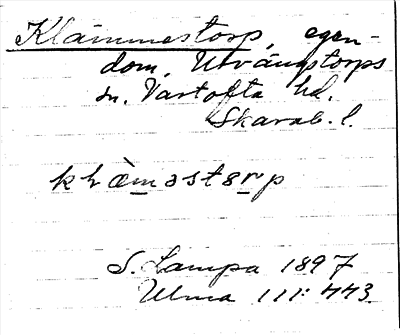 Klämmestorp, egen-
dom, Utvängstorps
sn. Vartofta hd.
Skarab. l.
klæ̀mɔstɔrp
S. Lampa 1897
Ulma 111:443.